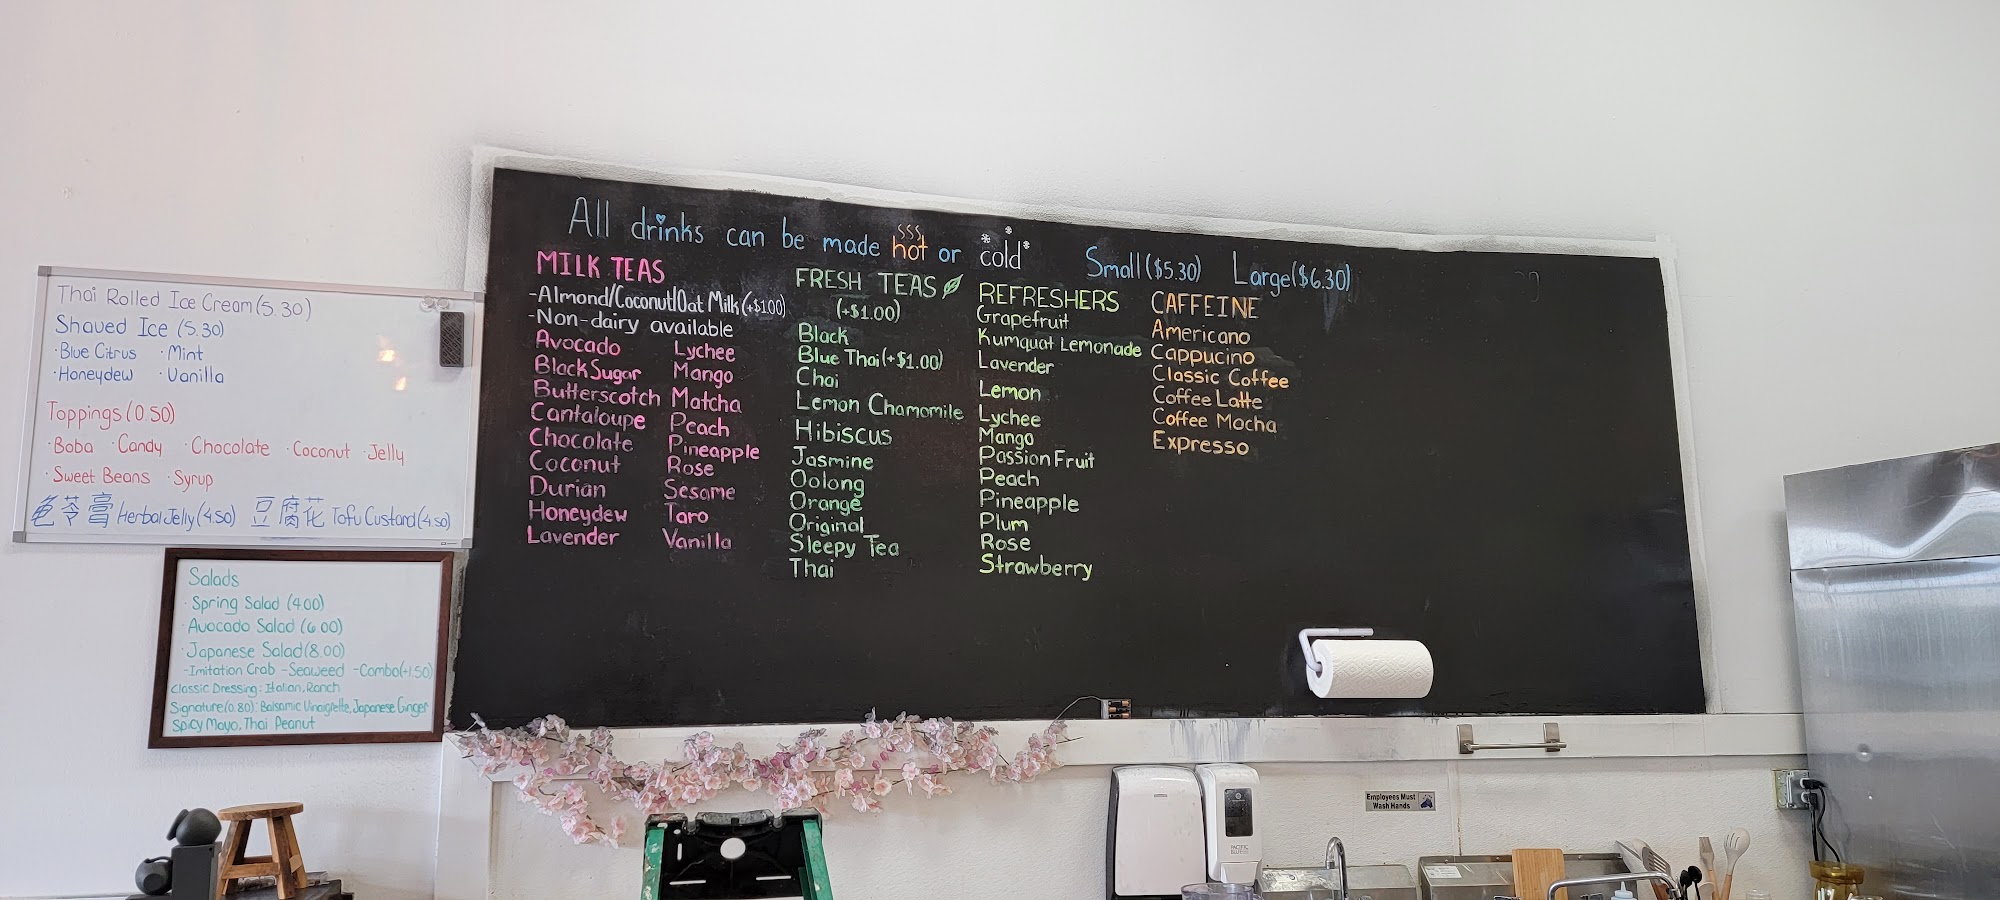 Thai Rolled Ice Cream (5.30)
Shaved Ice (5.30)
·Blue Citrus ·Mint
·Honeydew ·Vanilla
Toppings (0.50)
·Boba ·Candy ·Chocolate ·Coconut ·Jelly
·Sweet Beans ·Syrup
龟苓膏 Herbal Jelly (4.50) 豆腐花 Tofu Custard (4.50)
Salads
·Spring Salad (4.00)
·Avocado Salad (6.00)
·Japanese Salad (8.00)
-Imitation Crab -Seaweed -Combo (+1.50)
Classic Dressing: Italian, Ranch
Signature (0.80): Balsamic Vinaigrette, Japanese Ginger
Spicy Mayo, Thai Peanut
All drinks can be made hot or cold
Small ($5.30) Large ($6.30)
MILK TEAS
-Almond/Coconut/Oat Milk (+$1.00)
-Non-dairy available
Avocado Lychee
Black Sugar Mango
Butterscotch Matcha
Cantaloupe Peach
Chocolate Pineapple
Coconut Rose
Durian Sesame
Honeydew Taro
Lavender Vanilla
FRESH TEAS
(+$1.00)
Black
Blue Thai (+$1.00)
Chai
Lemon Chamomile
Hibiscus
Jasmine
Oolong
Orange
Original
Sleepy Tea
Thai
REFRESHERS
Grapefruit
Kumquat Lemonade
Lavender
Lemon
Lychee
Mango
Passion Fruit
Peach
Pineapple
Plum
Rose
Strawberry
CAFFEINE
Americano
Cappucino
Classic Coffee
Coffee Latte
Coffee Mocha
Expresso
Employees Must
Wash Hands